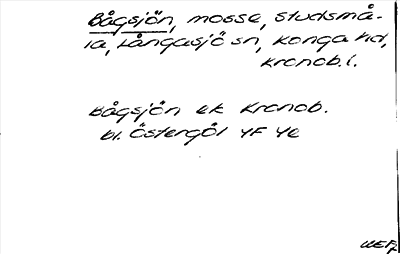 Bågsjön, mosse, Studsmå-
la, Långasjö sn, Konga hd,
Kronob. l.
Bågsjön ek Kronob.
bl. Östergöl 4F 4e